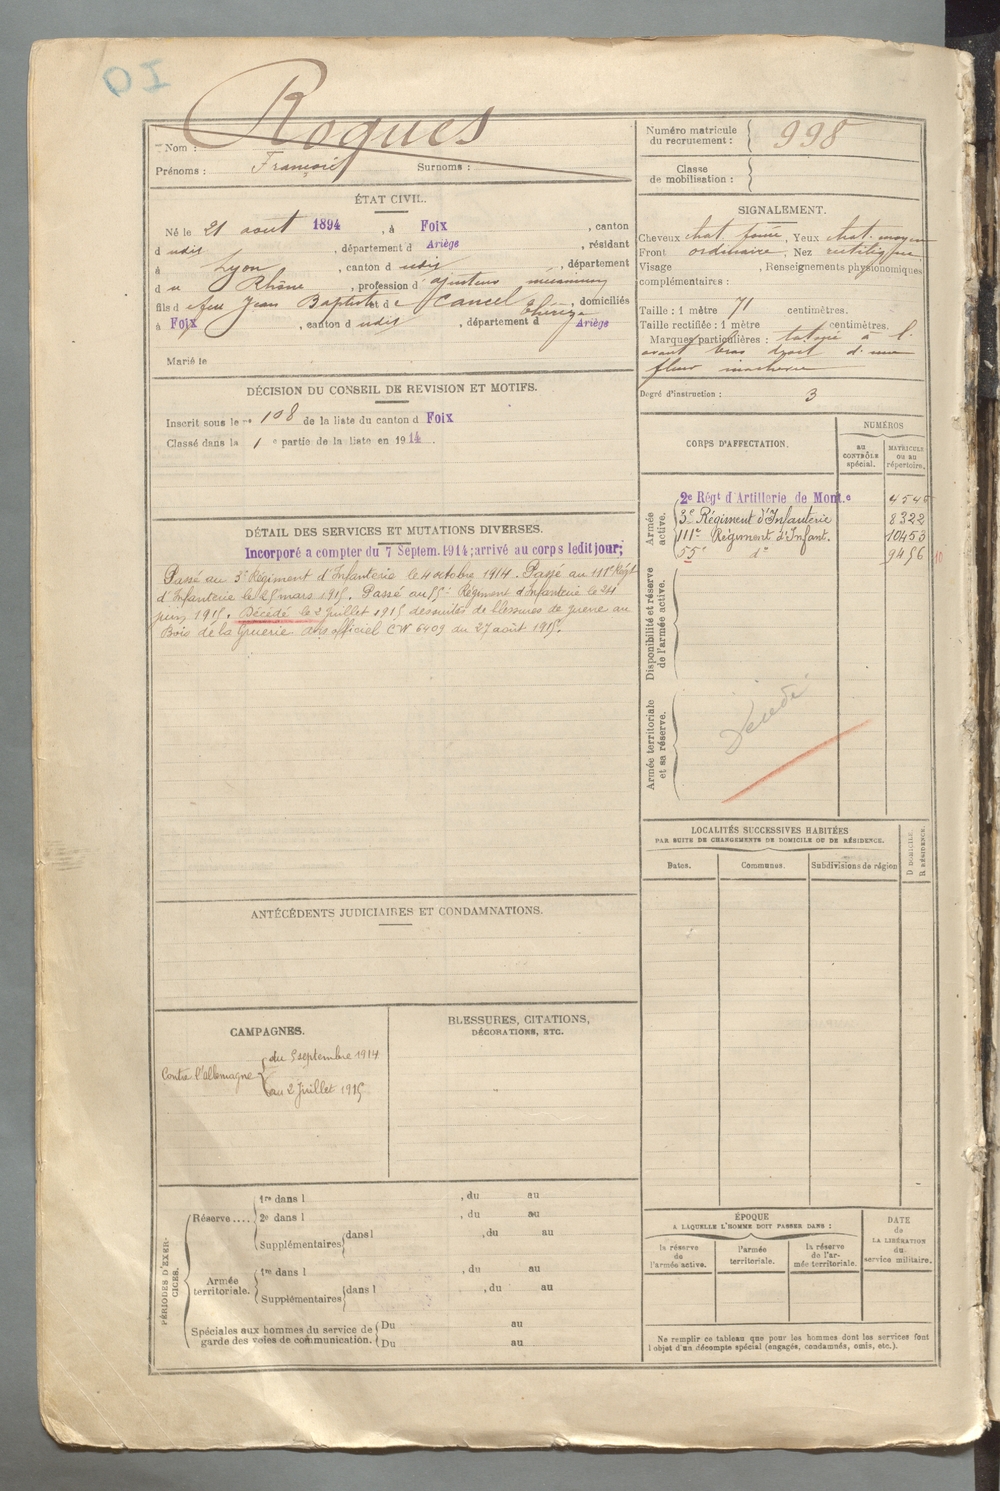 Roques
Nom :
Prénoms : François Surnoms :
Numéro matricule
du recrutement : 998
Classe
de mobilisation :
ÉTAT CIVIL.
Né le 21 aout 1894, à Foix, canton
d udis, département d Ariège, résidant
à Lyon, canton d udis, département
d u Rhône, profession d ajusteur mécanicien
fils d feu Jean Baptiste et d e Cancel Thérèze, domiciliés
à Foix, canton d udis, département d Ariège
Marié le
SIGNALEMENT.
Cheveux chat. foncé, Yeux chat. moyen
Front ordinaire, Nez rectiligne
Visage , Renseignements physionomiques
complémentaires :
Taille : 1 mètre 71 centimètres.
Taille rectifiée : 1 mètre centimètres.
Marques particulières : tatoué à l'
avant bras droit d'une
fleur
Degré d'instruction : 3
DÉCISION DU CONSEIL DE REVISION ET MOTIFS.
Inscrit sous le n° 108 de la liste du canton d Foix
Classé dans la 1 e partie de la liste en 1914.
CORPS D'AFFECTATION.
NUMÉROS
au
CONTRÔLE
spécial.
MATRICULE
ou au
répertoire.
Armée
active.
2e Régt d'Artillerie de Mont.e 4546
3e Régiment d'Infanterie 8322
111e Régiment d'Infant. 10453
55e do 9456 10
Disponibilité et réserve
de l'armée active.
Armée territoriale
et sa réserve.
Décédé
DÉTAIL DES SERVICES ET MUTATIONS DIVERSES.
Incorporé a compter du 7 Septem. 1914; arrivé au corps ledit jour;
Passé au 3e Régiment d'Infanterie le 4 octobre 1914. Passé au 111e Régt
d'Infanterie le 25 mars 1915. Passé au 55e Régiment d'Infanterie le 24
juin 1915. Décédé le 2 juillet 1915 des suites de blessures de guerre au
Bois de la Gruerie. Avis officiel CW 6409 du 27 août 1915.
LOCALITÉS SUCCESSIVES HABITÉES
PAR SUITE DE CHANGEMENTS DE DOMICILE OU DE RÉSIDENCE.
Dates.
Communes.
Subdivisions de région
D DOMICILE.
R RÉSIDENCE.
ANTÉCÉDENTS JUDICIAIRES ET CONDAMNATIONS.
CAMPAGNES.
Contre l'Allemagne
du 5 septembre 1914
au 2 Juillet 1915
BLESSURES, CITATIONS,
DÉCORATIONS, ETC.
PÉRIODES D'EXER-
CICES.
Réserve....
1re dans l , du au
2e dans l , du au
Supplémentaires dans l , du au
Armée
territoriale.
1re dans l , du au
Supplémentaires dans l , du au
Spéciales aux hommes du service de
garde des voies de communication.
Du au
Du au
ÉPOQUE
A LAQUELLE L'HOMME DOIT PASSER DANS :
la réserve
de
l'armée active.
l'armée
territoriale.
la réserve
de l'ar-
mée territoriale.
DATE
de
LA LIBÉRATION
du
service militaire.
Ne remplir ce tableau que pour les hommes dont les services font
l'objet d'un décompte spécial (engagés, condamnés, omis, etc.).